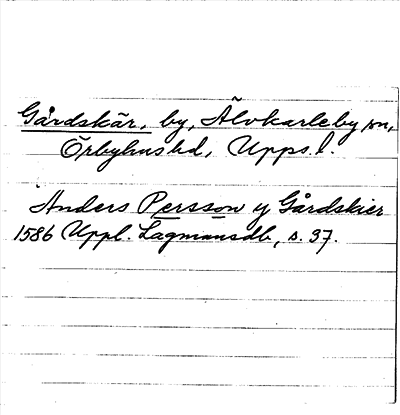 Gårdskär, by, Älvkarleby sn,
Örbyhus hd, Upps. l.
Anders Persson y Gårdskier
1586 Uppl. Lagmansdb, s. 37.